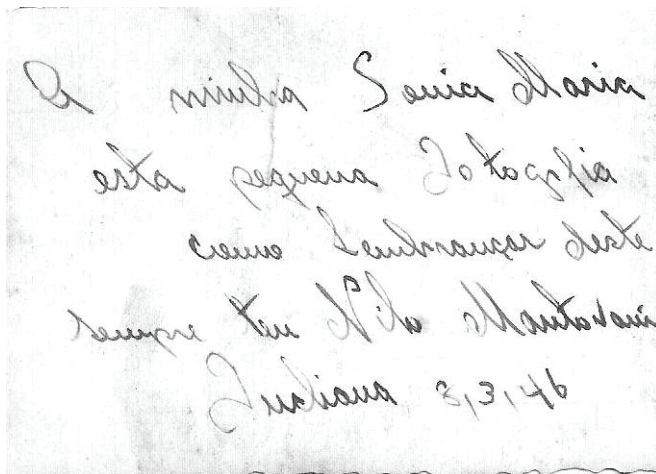 A minha Sonia Maria
esta pequena Fotogrfia
como Lembrançar deste
sempre teu Nilo Mantovani
Indiana 3,3,46